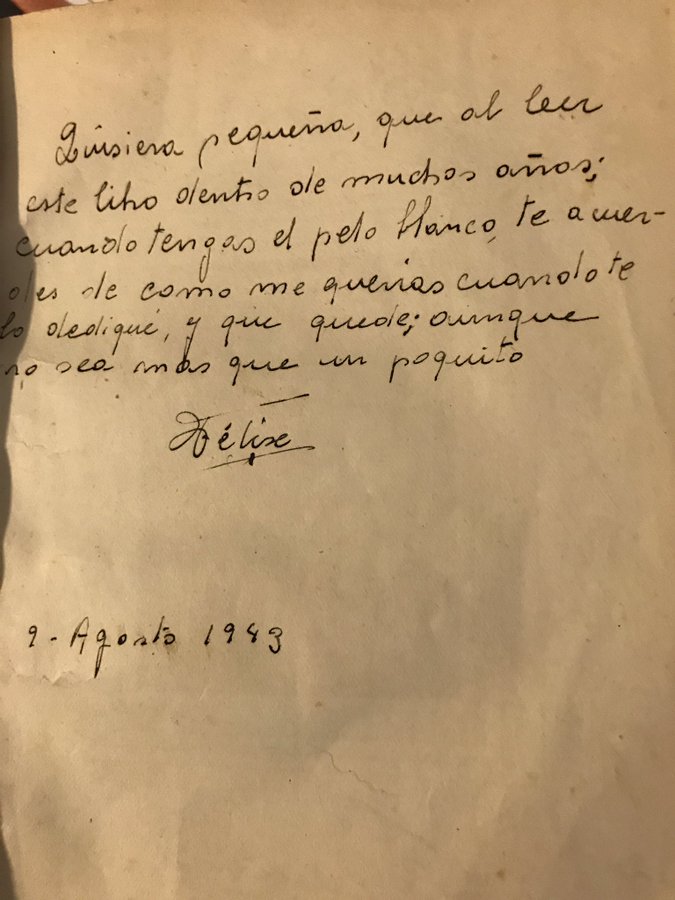 Quisiera pequeña, que al leer
este libro dentro de muchos años;
cuando tengas el pelo blanco, te acuer-
des de como me querias cuando te
lo dediqué, y que quede; aunque
no sea más que un poquito
Félix
9 - Agosto 1943